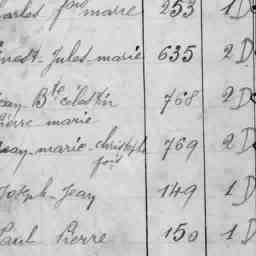 Charles fois marie 253 1 D
Ernest-Jules-marie 635 2 D
Jean Bte célestin 768 2 D
Pierre marie
Jean-marie-christophe 769 2 D
fois
Joseph-Jean 149 1 D
Paul Pierre 150 1 D